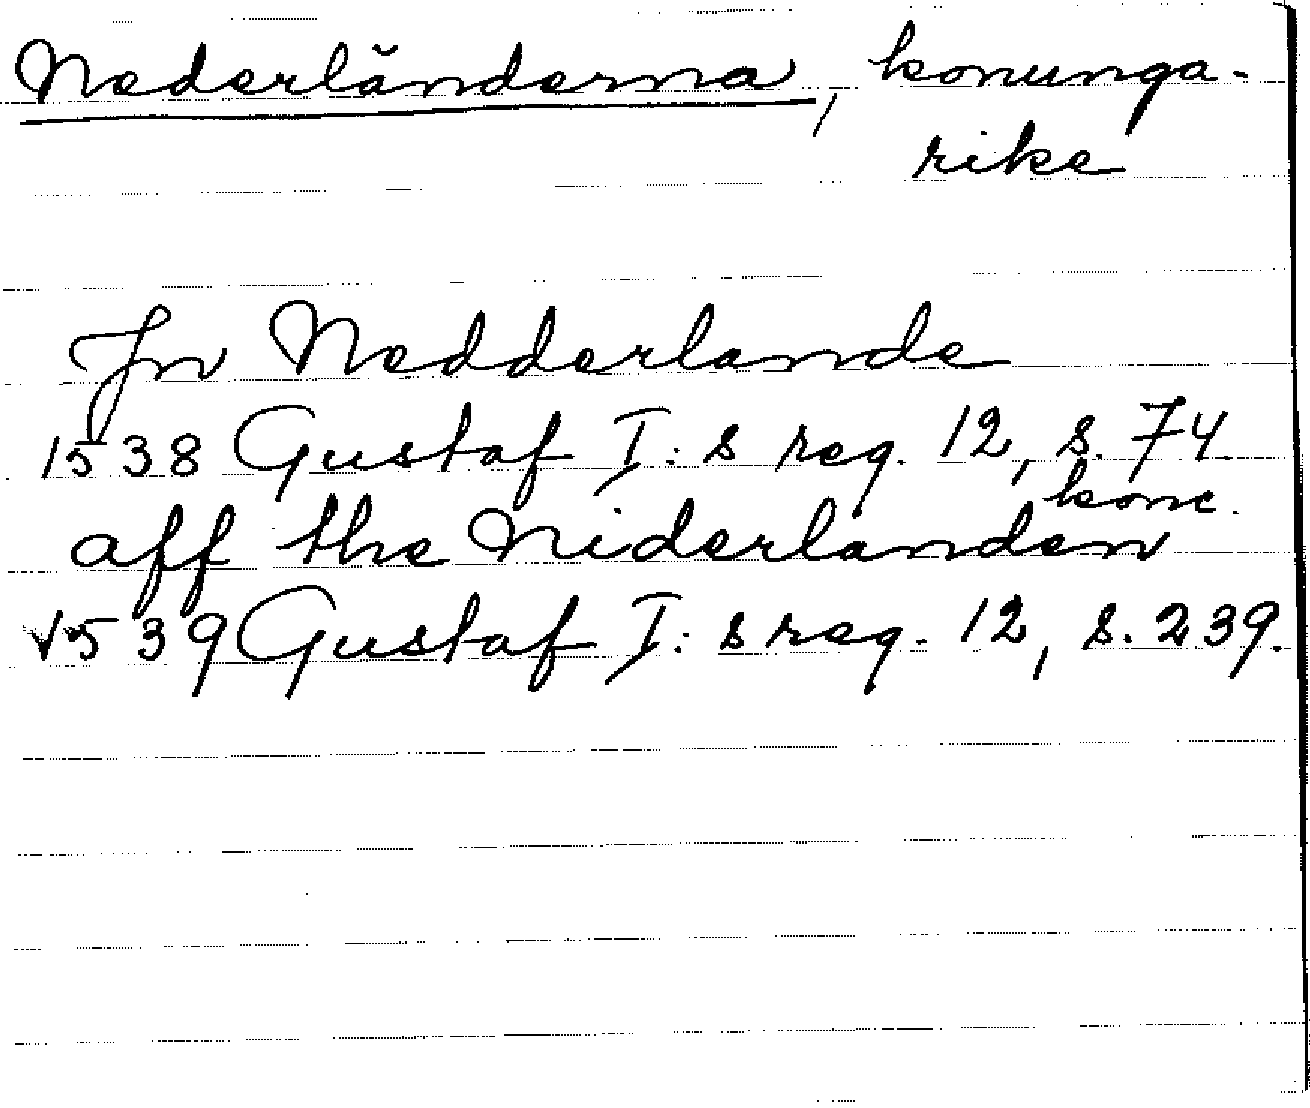 Nederländerna, konunga-
rike
Jn Nedderlande
1538 Gustaf I:s reg. 12, s. 74
konc.
aff the Niderlanden
1539 Gustaf I:s reg. 12, s. 239.